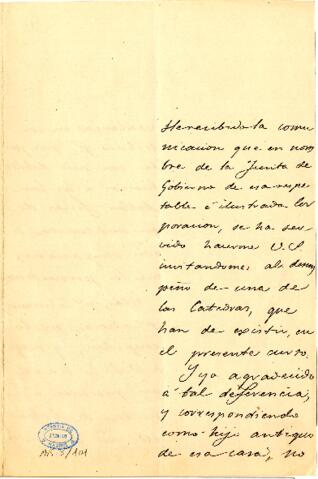 He recibido la comu
nicacion que en nom
bre de la Junta de
Gobierno de esa respe
table é ilustrada Cor
poracion, se ha ser
vido hacerme V.S.
invitandome al desem
peño de una de
las Catedras, que
han de existir, en
el presente curso.
Y yo agradecido
á tal deferencia,
y correspondiendo
como hijo antiguo
de esa casa, no